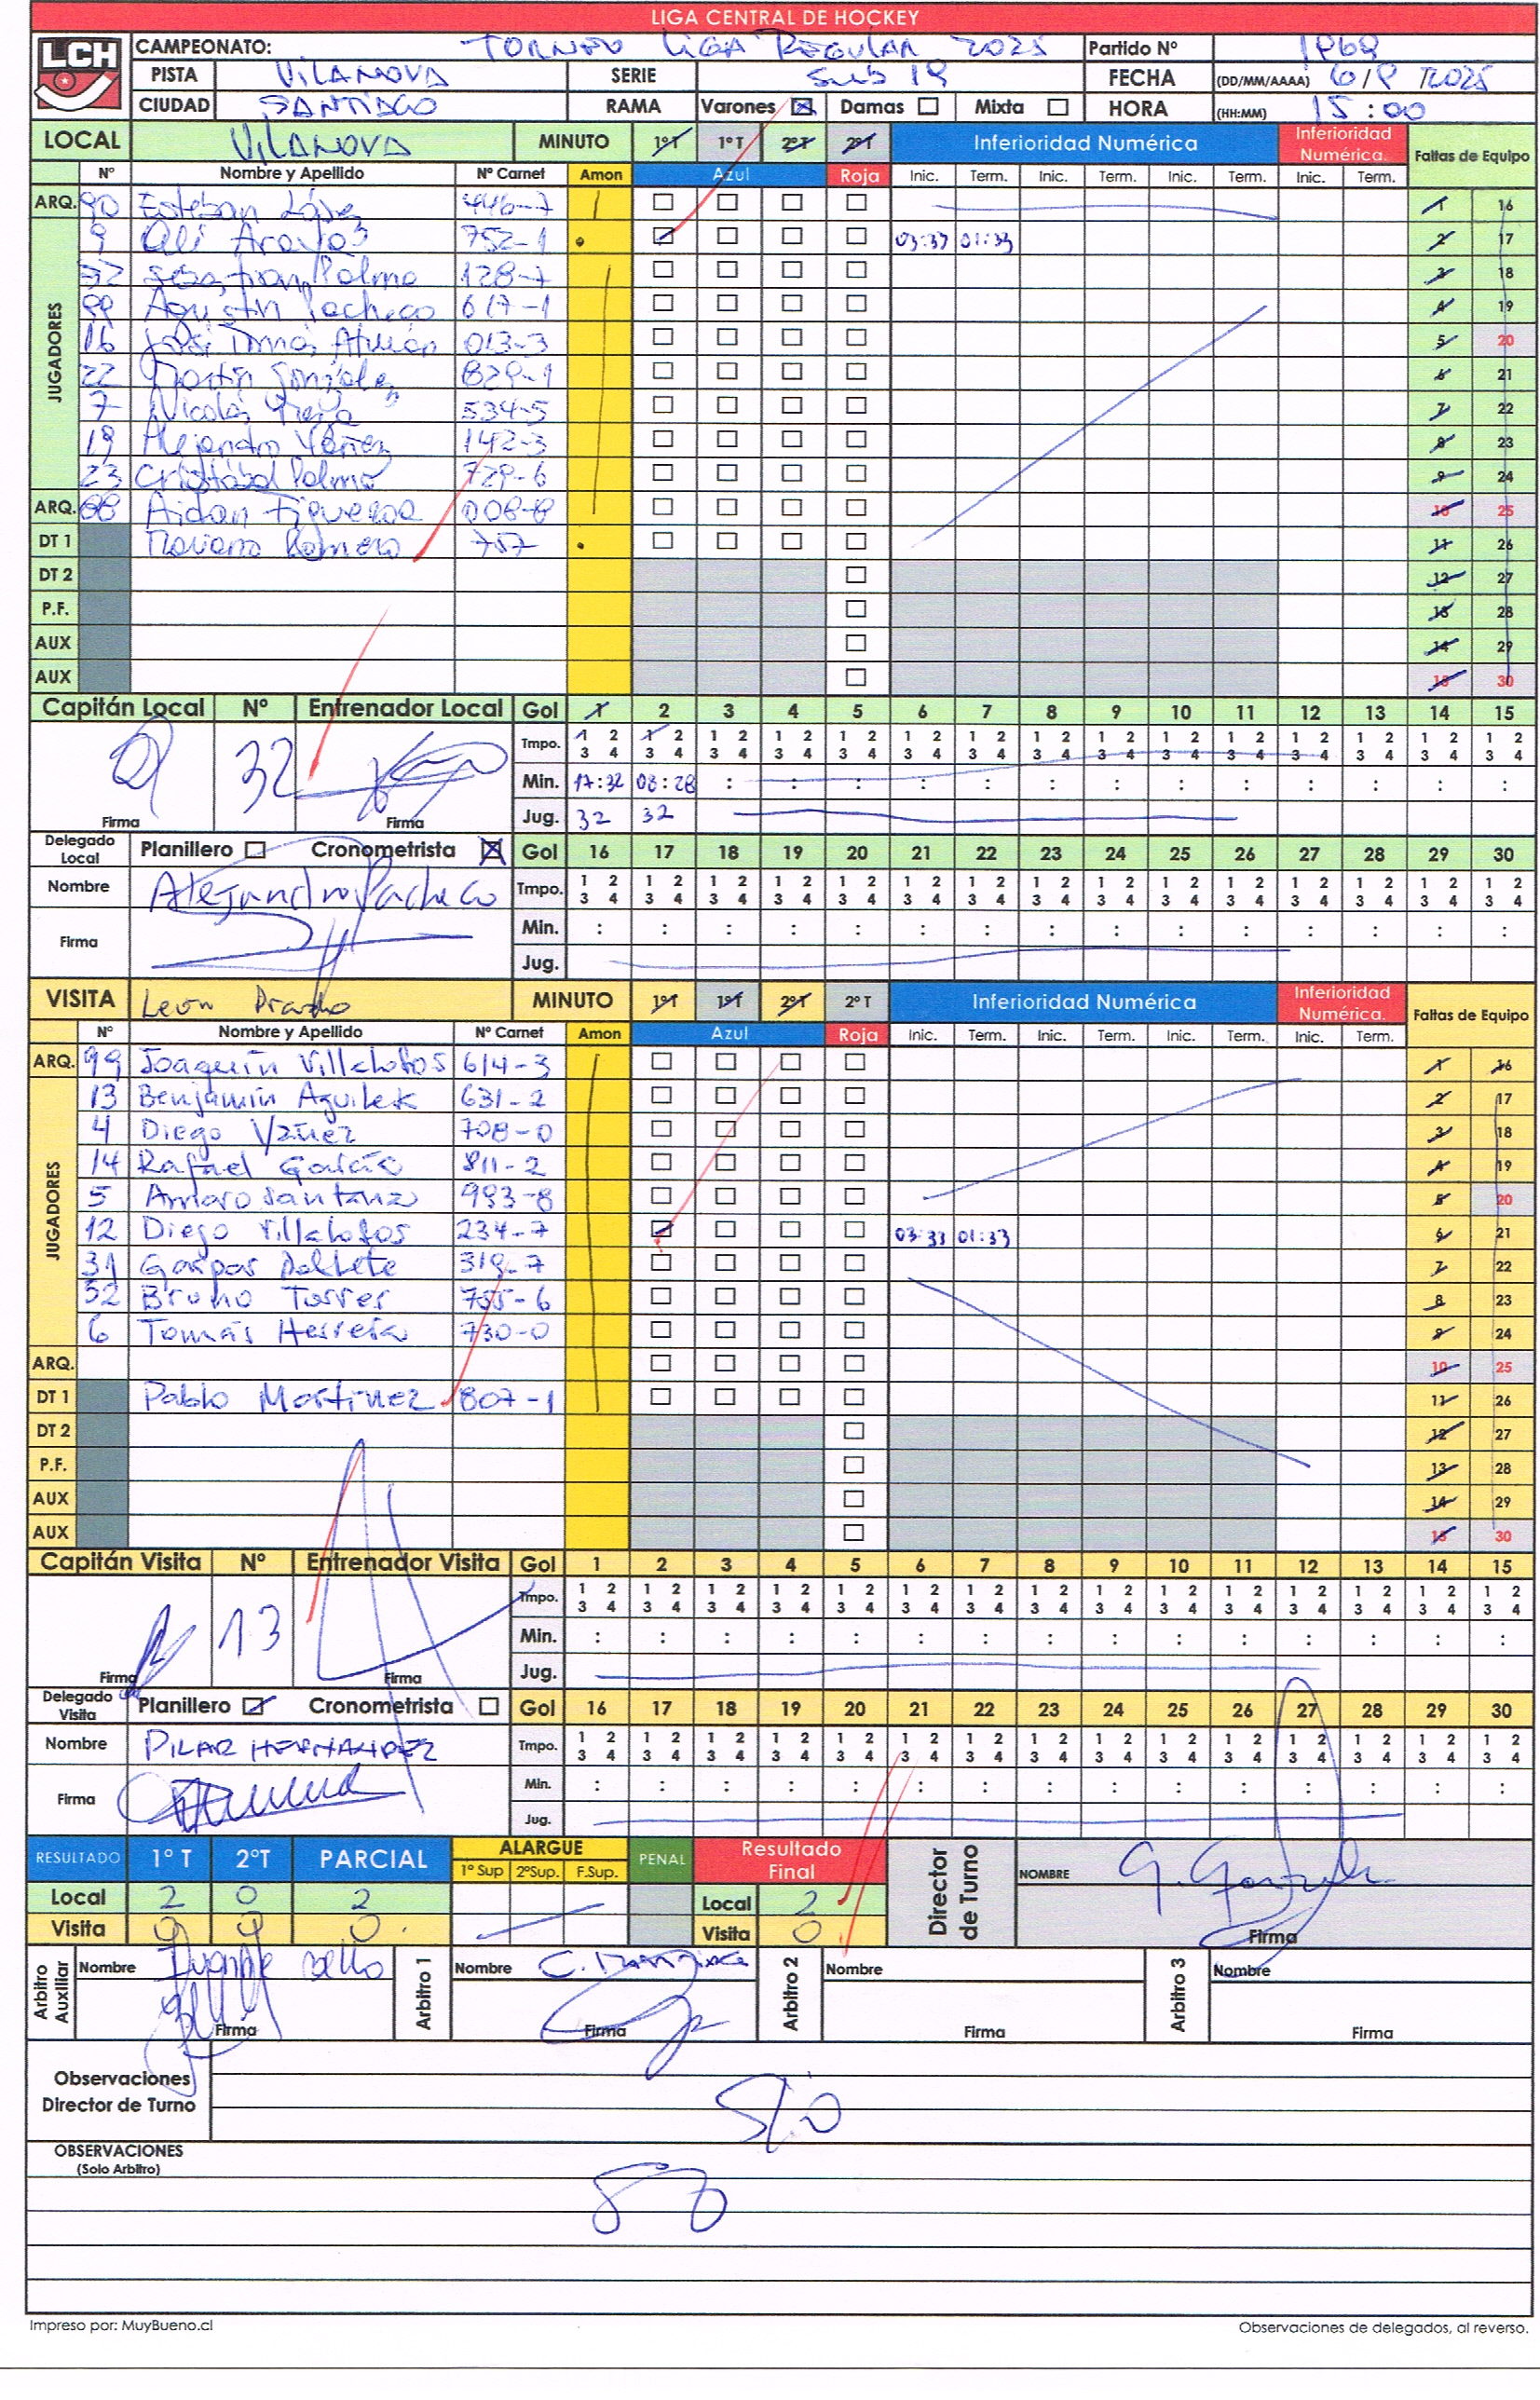 LIGA CENTRAL DE HOCKEY
LCH
CAMPEONATO: TORNEO LIGA REGULAR 2025 Partido Nº
PISTA VILANOVA SERIE Sub 19 FECHA (DD/MM/AAAA)
CIUDAD SANTIAGO RAMA Varones Damas Mixta HORA (HH:MM) 15:00
LOCAL VILANOVA MINUTO 1ºT 1ºT 2ºT 2ºT Inferioridad Numérica Inferioridad Numérica. Faltas de Equipo
Nº Nombre y Apellido Nº Carnet Amon Azul Roja Inic. Term. Inic. Term. Inic. Term. Inic. Term.
JUGADORES
ARQ. 90 Esteban López 446-7 1 16
9 Ali Araya 752-1 03:33 01:33 2 17
32 Sebastian Palma 128-7 3 18
99 Agustin Pacheco 617-1 4 19
16 José Tomás 013-3 5 20
22 Martín González 829-1 6 21
7 Nicolás 534-5 7 22
19 Alejandro Yáñez 142-3 8 23
23 Cristóbal Palma 729-6 9 24
ARQ. 88 Aidan Figueroa 008-8 10 25
DT 1 Mariano Romero 757 11 26
DT 2 12 27
P.F. 13 28
AUX 14 29
AUX 15 30
Capitán Local Nº Entrenador Local Gol 1 2 3 4 5 6 7 8 9 10 11 12 13 14 15
Tmpo. 1 2 3 4 1 2 3 4 1 2 3 4 1 2 3 4 1 2 3 4 1 2 3 4 1 2 3 4 1 2 3 4 1 2 3 4 1 2 3 4 1 2 3 4 1 2 3 4 1 2 3 4 1 2 3 4 1 2 3 4
32 Min. 17:32 08:28 : : : : : : : : : : : : :
Firma Firma Jug. 32 32
Delegado Local Planillero Cronometrista Gol 16 17 18 19 20 21 22 23 24 25 26 27 28 29 30
Nombre Alejandro Pacheco Tmpo. 1 2 3 4 1 2 3 4 1 2 3 4 1 2 3 4 1 2 3 4 1 2 3 4 1 2 3 4 1 2 3 4 1 2 3 4 1 2 3 4 1 2 3 4 1 2 3 4 1 2 3 4 1 2 3 4 1 2 3 4
Firma Min. : : : : : : : : : : : : : : :
Jug.
VISITA Leon Prado MINUTO 1ºT 1ºT 2ºT 2ºT Inferioridad Numérica Inferioridad Numérica. Faltas de Equipo
Nº Nombre y Apellido Nº Carnet Amon Azul Roja Inic. Term. Inic. Term. Inic. Term. Inic. Term.
JUGADORES
ARQ. 99 Joaquín Villalobos 614-3 1 16
13 Benjamín Aguilera 631-2 2 17
4 Diego Yáñez 708-0 3 18
14 Rafael García 811-2 4 19
5 Amaro Santana 993-8 5 20
12 Diego Villalobos 234-7 03:33 01:33 6 21
31 Gaspar 319-7 7 22
52 Bruno Torres 755-6 8 23
6 Tomás Herrera 730-0 9 24
ARQ. 10 25
DT 1 Pablo Martinez 807-1 11 26
DT 2 12 27
P.F. 13 28
AUX 14 29
AUX 15 30
Capitán Visita Nº Entrenador Visita Gol 1 2 3 4 5 6 7 8 9 10 11 12 13 14 15
Tmpo. 1 2 3 4 1 2 3 4 1 2 3 4 1 2 3 4 1 2 3 4 1 2 3 4 1 2 3 4 1 2 3 4 1 2 3 4 1 2 3 4 1 2 3 4 1 2 3 4 1 2 3 4 1 2 3 4 1 2 3 4
13 Min. : : : : : : : : : : : : : : :
Firma Firma Jug.
Delegado Visita Planillero Cronometrista Gol 16 17 18 19 20 21 22 23 24 25 26 27 28 29 30
Nombre PILAR HERNANDEZ Tmpo. 1 2 3 4 1 2 3 4 1 2 3 4 1 2 3 4 1 2 3 4 1 2 3 4 1 2 3 4 1 2 3 4 1 2 3 4 1 2 3 4 1 2 3 4 1 2 3 4 1 2 3 4 1 2 3 4 1 2 3 4
Firma Min. : : : : : : : : : : : : : : :
Jug.
RESULTADO 1º T 2ºT PARCIAL ALARGUE 1º Sup 2ºSup. F.Sup. PENAL Resultado Final Director de Turno NOMBRE
Local 2 0 2 Local 2
Visita 0 0 0 Visita 0 Firma
Arbitro Auxiliar Nombre Arbitro 1 Nombre Arbitro 2 Nombre Arbitro 3 Nombre
Firma Firma Firma Firma
Observaciones
Director de Turno S/O
OBSERVACIONES
(Solo Arbitro)
Impreso por: MuyBueno.cl Observaciones de delegados, al reverso.